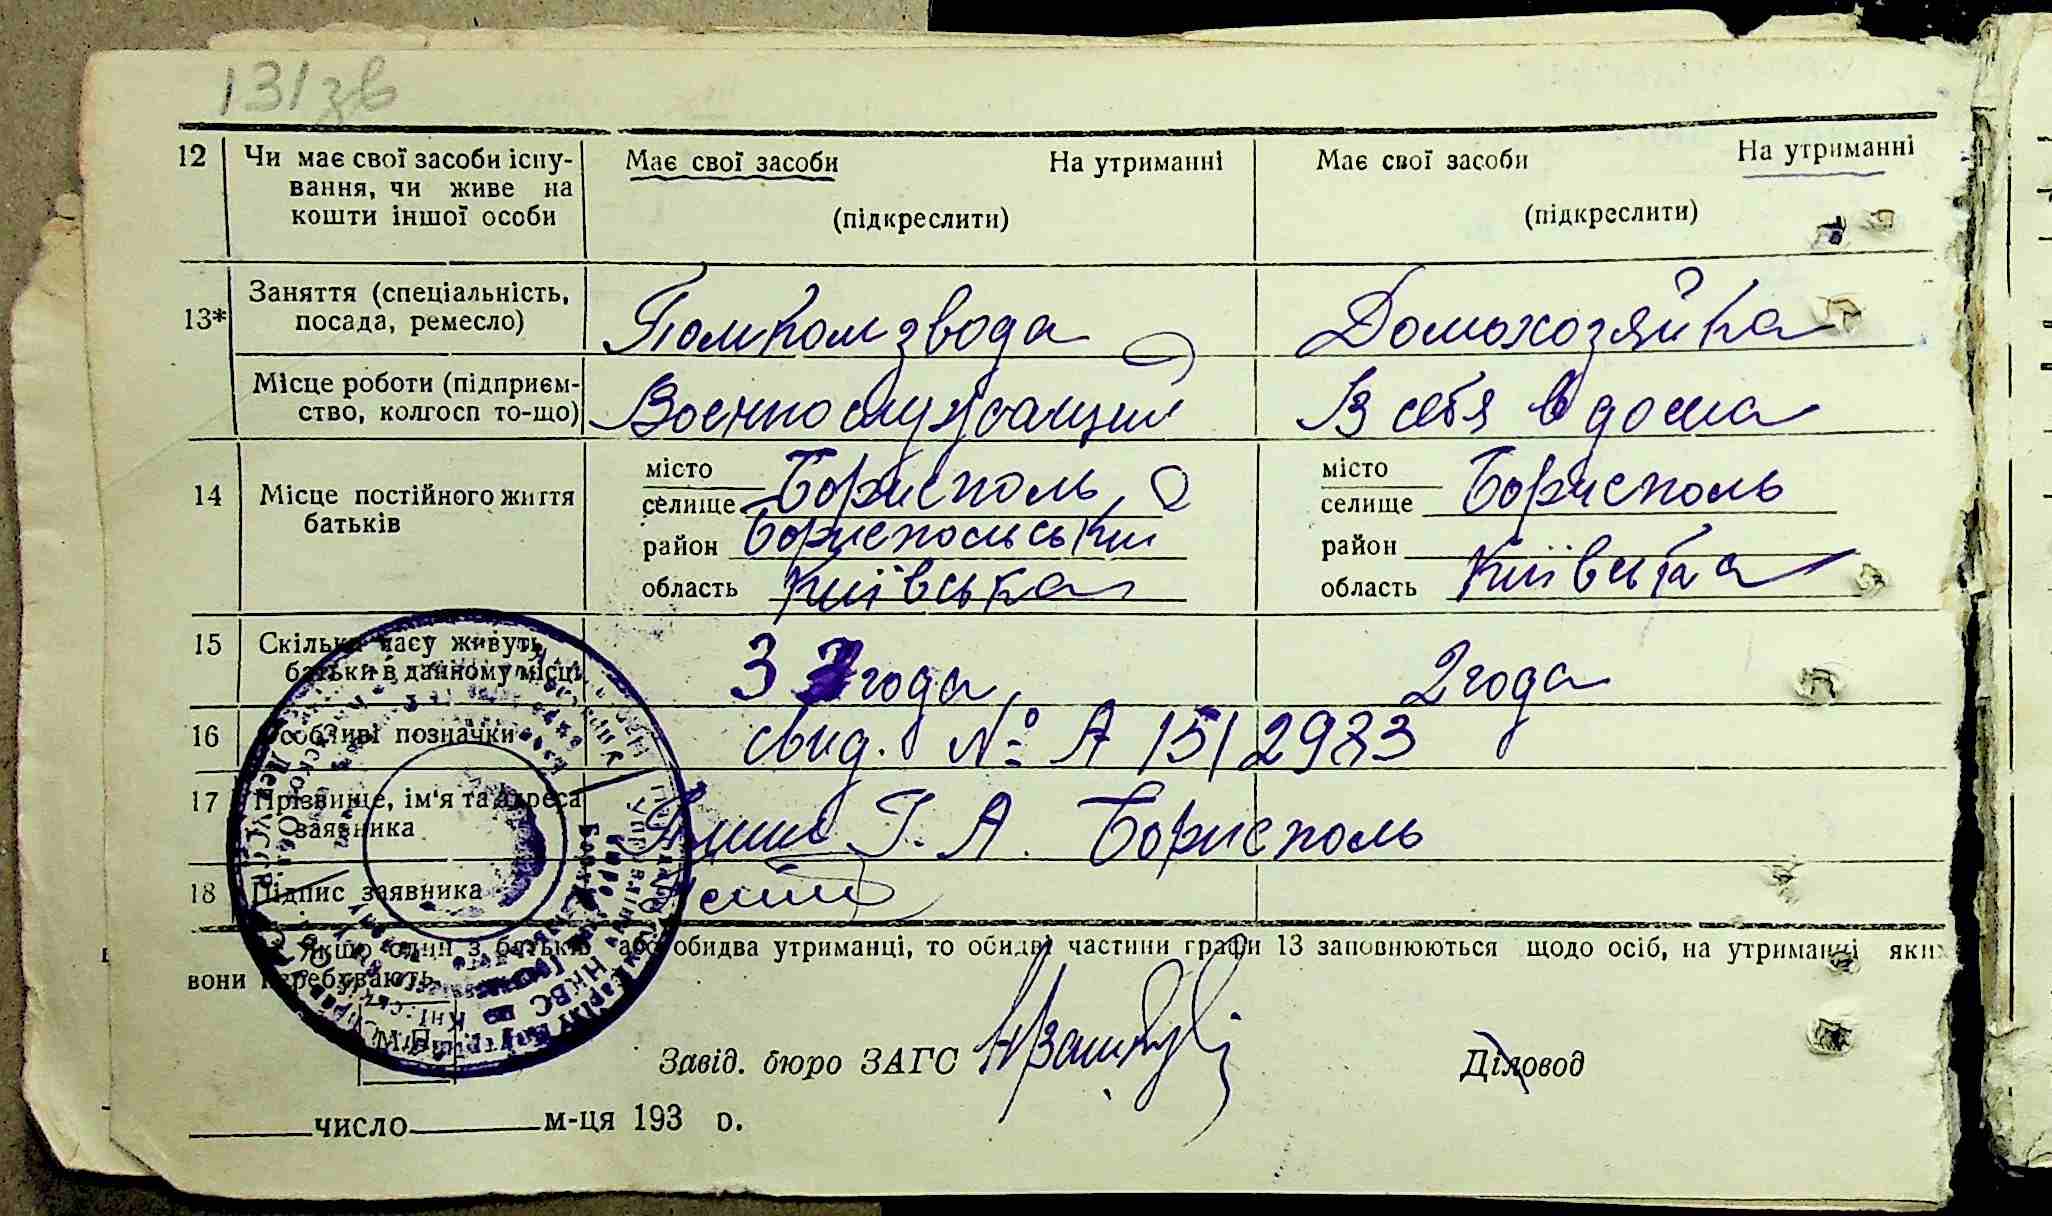 131зв
12 Чи має свої засоби існу- Має свої засоби На утриманні Має свої засоби На утриманні
вання, чи живе на
кошти іншої особи (підкреслити) (підкреслити)
13* Заняття (спеціальність,
посада, ремесло) Помкомзвода Домохозяйка
Місце роботи (підприєм-
ство, колгосп то-що) Военнослужащий В себя в дома
14 Місце постійного життя
батьків
місто
селище Борисполь
район Бориспольський
область Київська
місто
селище Борисполь
район
область Київська
15 Скільки часу живуть
батьки в данному місці 3 года 2 года
16 Особливі позначки свид. № А 151 2983
17 Прізвище, ім'я та адреса
заявника Г. А. Борисполь
18 Підпис заявника
Якщо один з батьків або обидва утриманці, то обидві частини графи 13 заповнюються щодо осіб, на утриманні яких
вони перебувають.
М.П.
Завід. бюро ЗАГС
Діловод
число м-ця 193 о.